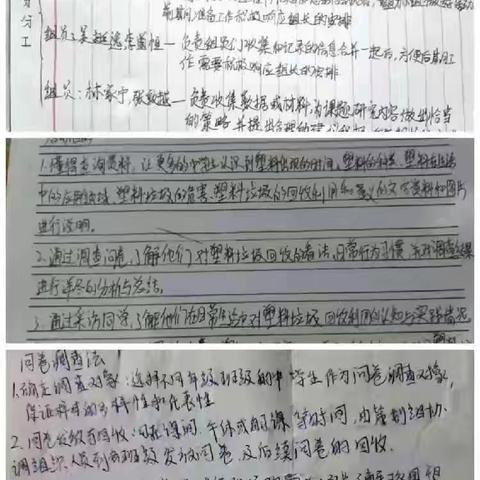 分
工
前期准备工作积极响应组长的安排
组员: 负责组员们收集和记录的信息合并一起后,方便后期工
作需要积极响应组长的安排
组员:林家宁 张 — 负责收集数据或材料,为课题研究内容做出恰当
的策略并提出合理的建议
1.懂得查询资料,让更多的中学生认识到塑料出现的时间、塑料的种类、塑料在生活
中的应用领域、塑料垃圾的危害、塑料垃圾的回收利用和意义的文字资料和图片
进行说明。
2.通过调查问卷,了解他们对塑料垃圾回收的看法,日常行为习惯,并对调查结果
进行详尽的分析与总结。
3.通过采访同学,了解他们在日常生活中对塑料垃圾回收利用的认知与实践情况
问卷调查法
1.确定调查对象:选择不同年级班级的中学生作为问卷调查对象,
保证样本的多样性和代表性
2.问卷发放与回收:可在课间、午休或自习课等时间,由策划组协
调组织人员到班级发放问卷及后续问卷的回收。